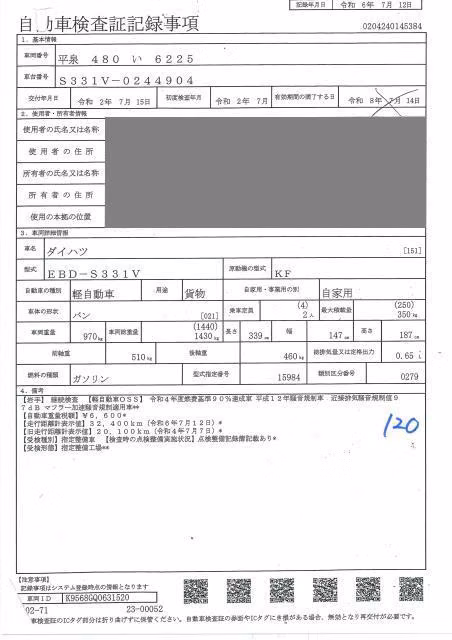 記録年月日 令和 6年 7月 12日
自動車検査証記録事項
0204240145384
1. 基本情報
車両番号 平泉 480 い 6225
車台番号 S331V-0244904
交付年月日 令和 2年 7月 15日 初度検査年月 令和 2年 7月 有効期間の満了する日 令和 8年 7月 14日
2. 使用者・所有者情報
使用者の氏名又は名称
使用者の住所
所有者の氏名又は名称
所有者の住所
使用の本拠の位置
3. 車両詳細情報
車名 ダイハツ [151]
型式 EBD-S331V 原動機の型式 KF
自動車の種別 軽自動車 用途 貨物 自家用・事業用の別 自家用
車体の形状 バン [021] 乗車定員 (4) 2人 最大積載量 (250) 350kg
車両重量 970kg 車両総重量 (1440) 1430kg 長さ 339cm 幅 147cm 高さ 187cm
前軸重 510kg 後軸重 460kg 総排気量又は定格出力 0.65 L
燃料の種類 ガソリン 型式指定番号 15984 類別区分番号 0279
4. 備考
【岩手】 継続検査 【軽自動車OSS】 令和4年度燃費基準90%達成車 平成12年騒音規制車 近接排気騒音規制値9
7dB マフラー加速騒音規制適用車**
【自動車重量税額】¥6,600*
【走行距離計表示値】32,400km(令和6年7月12日)*
【旧走行距離計表示値】20,100km(令和4年7月7日)*
【受検種別】指定整備車 【検査時の点検整備実施状況】点検整備記録簿記載あり*
【受検形態】指定整備工場**
120
【注意事項】
記録事項はシステム登録時点の情報となります
車両ID K9568GQ0631520
02-71 23-00052
車検査証のICタグ部分は折り曲げずに保管ください。自動車検査証の券面やICタグにき損がある場合、無効となり再交付が必要です。